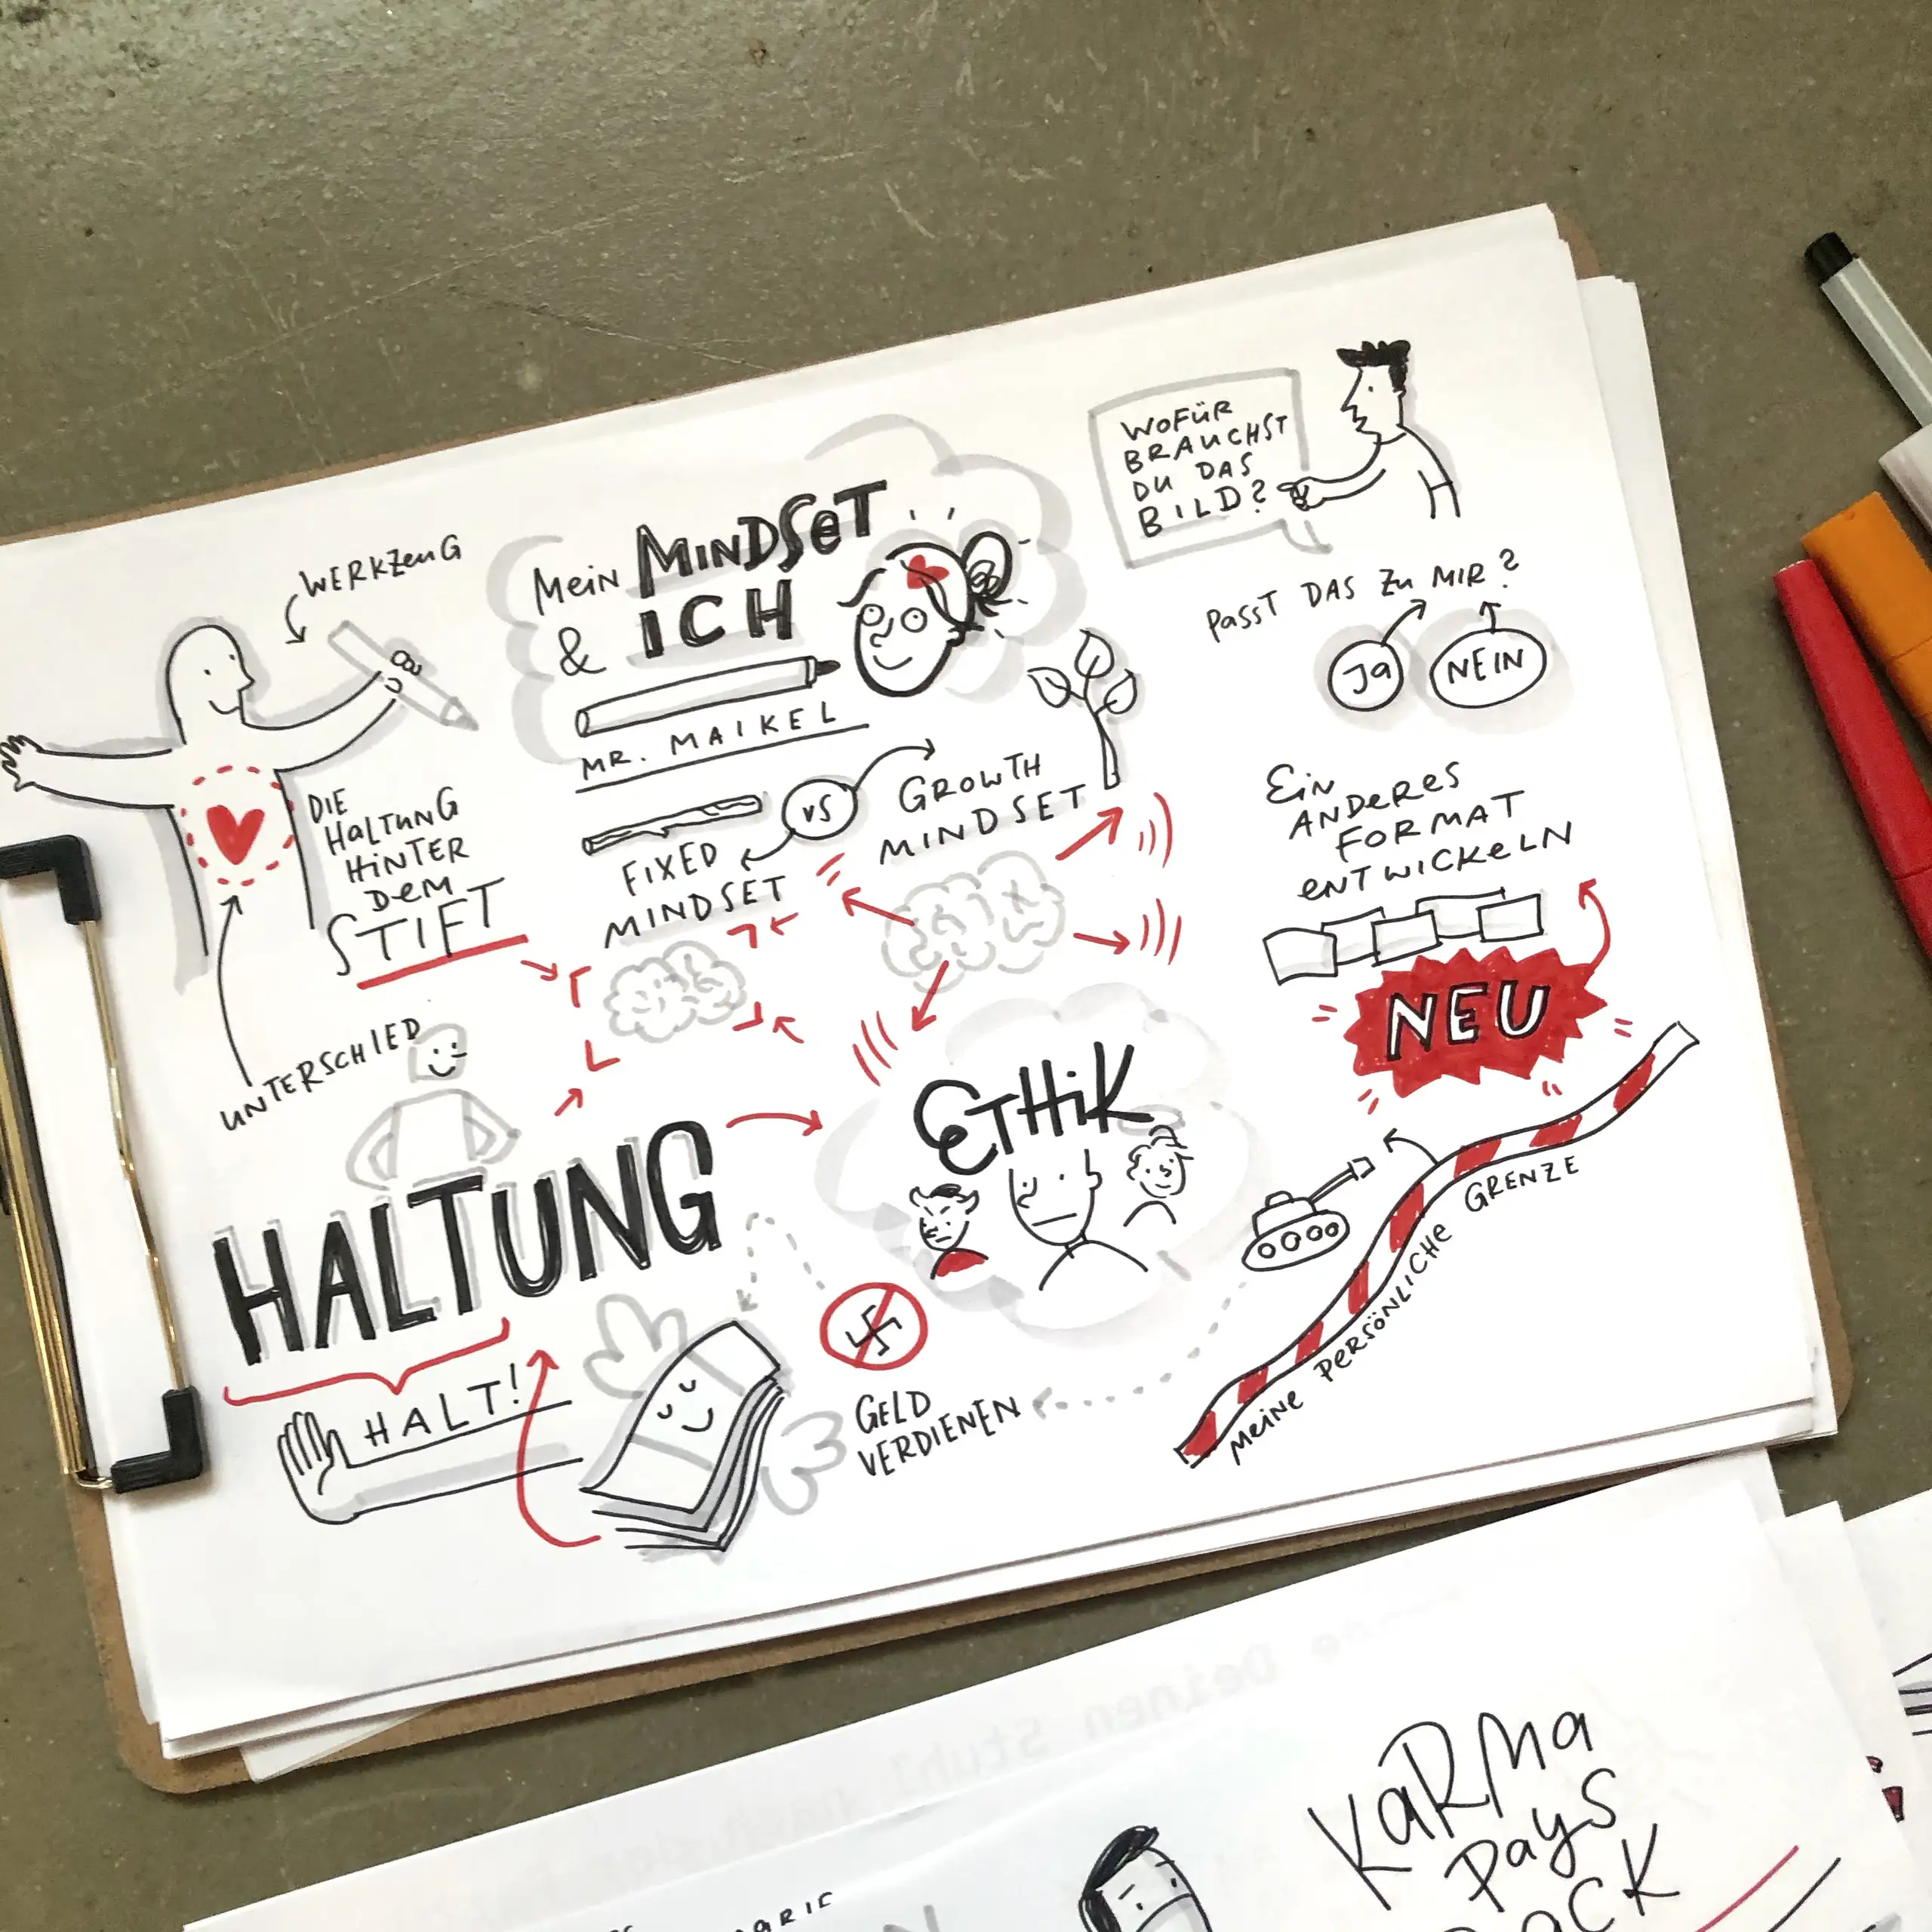 WERKZEUG
DIE
HALTUNG
HINTER
DEM
STIFT
UNTERSCHIED
Mein MINDSET
& ICH
MR. MAIKEL
FIXED
MINDSET
VS
GROWTH
MINDSET
WOFÜR
BRAUCHST
DU DAS
BILD?
PASST DAS ZU MIR?
JA
NEIN
EIN
ANDERES
FORMAT
ENTWICKELN
NEU
HALTUNG
HALT!
ETHIK
GELD
VERDIENEN
MEINE PERSÖNLICHE GRENZE
KARMA
PAYS